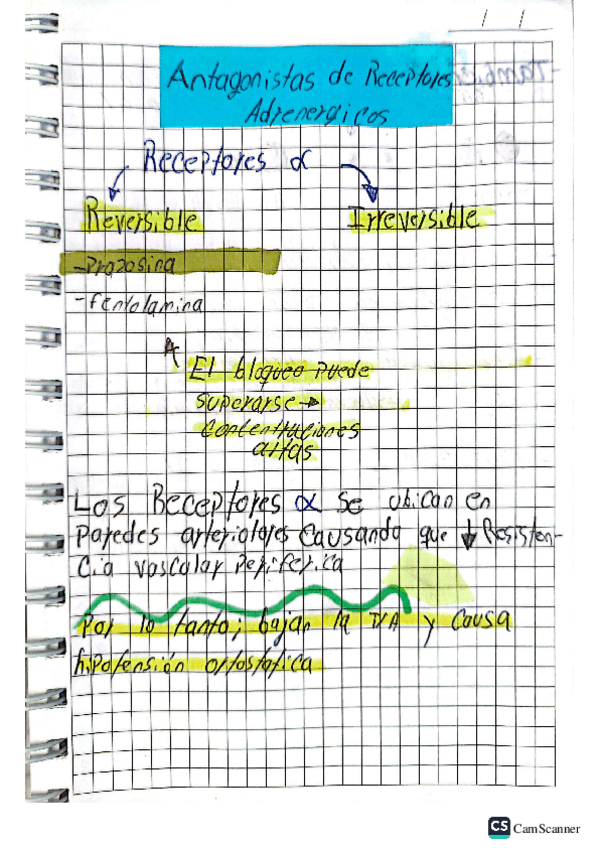 / /
Antagonistas de Receptores
Adrenergicos
Receptores α
Reversible
Irreversible
-Prozosina
-fentolamina
El bloqueo puede
superarse →
Contentraciones
altas
Los Receptores α se ubican en
Paredes arteriolares Causando que ↓ Resisten-
Cia vascular Periferica
Por lo tanto; bajan la T/A y Causa
hipotensión ortostatica
CS CamScanner